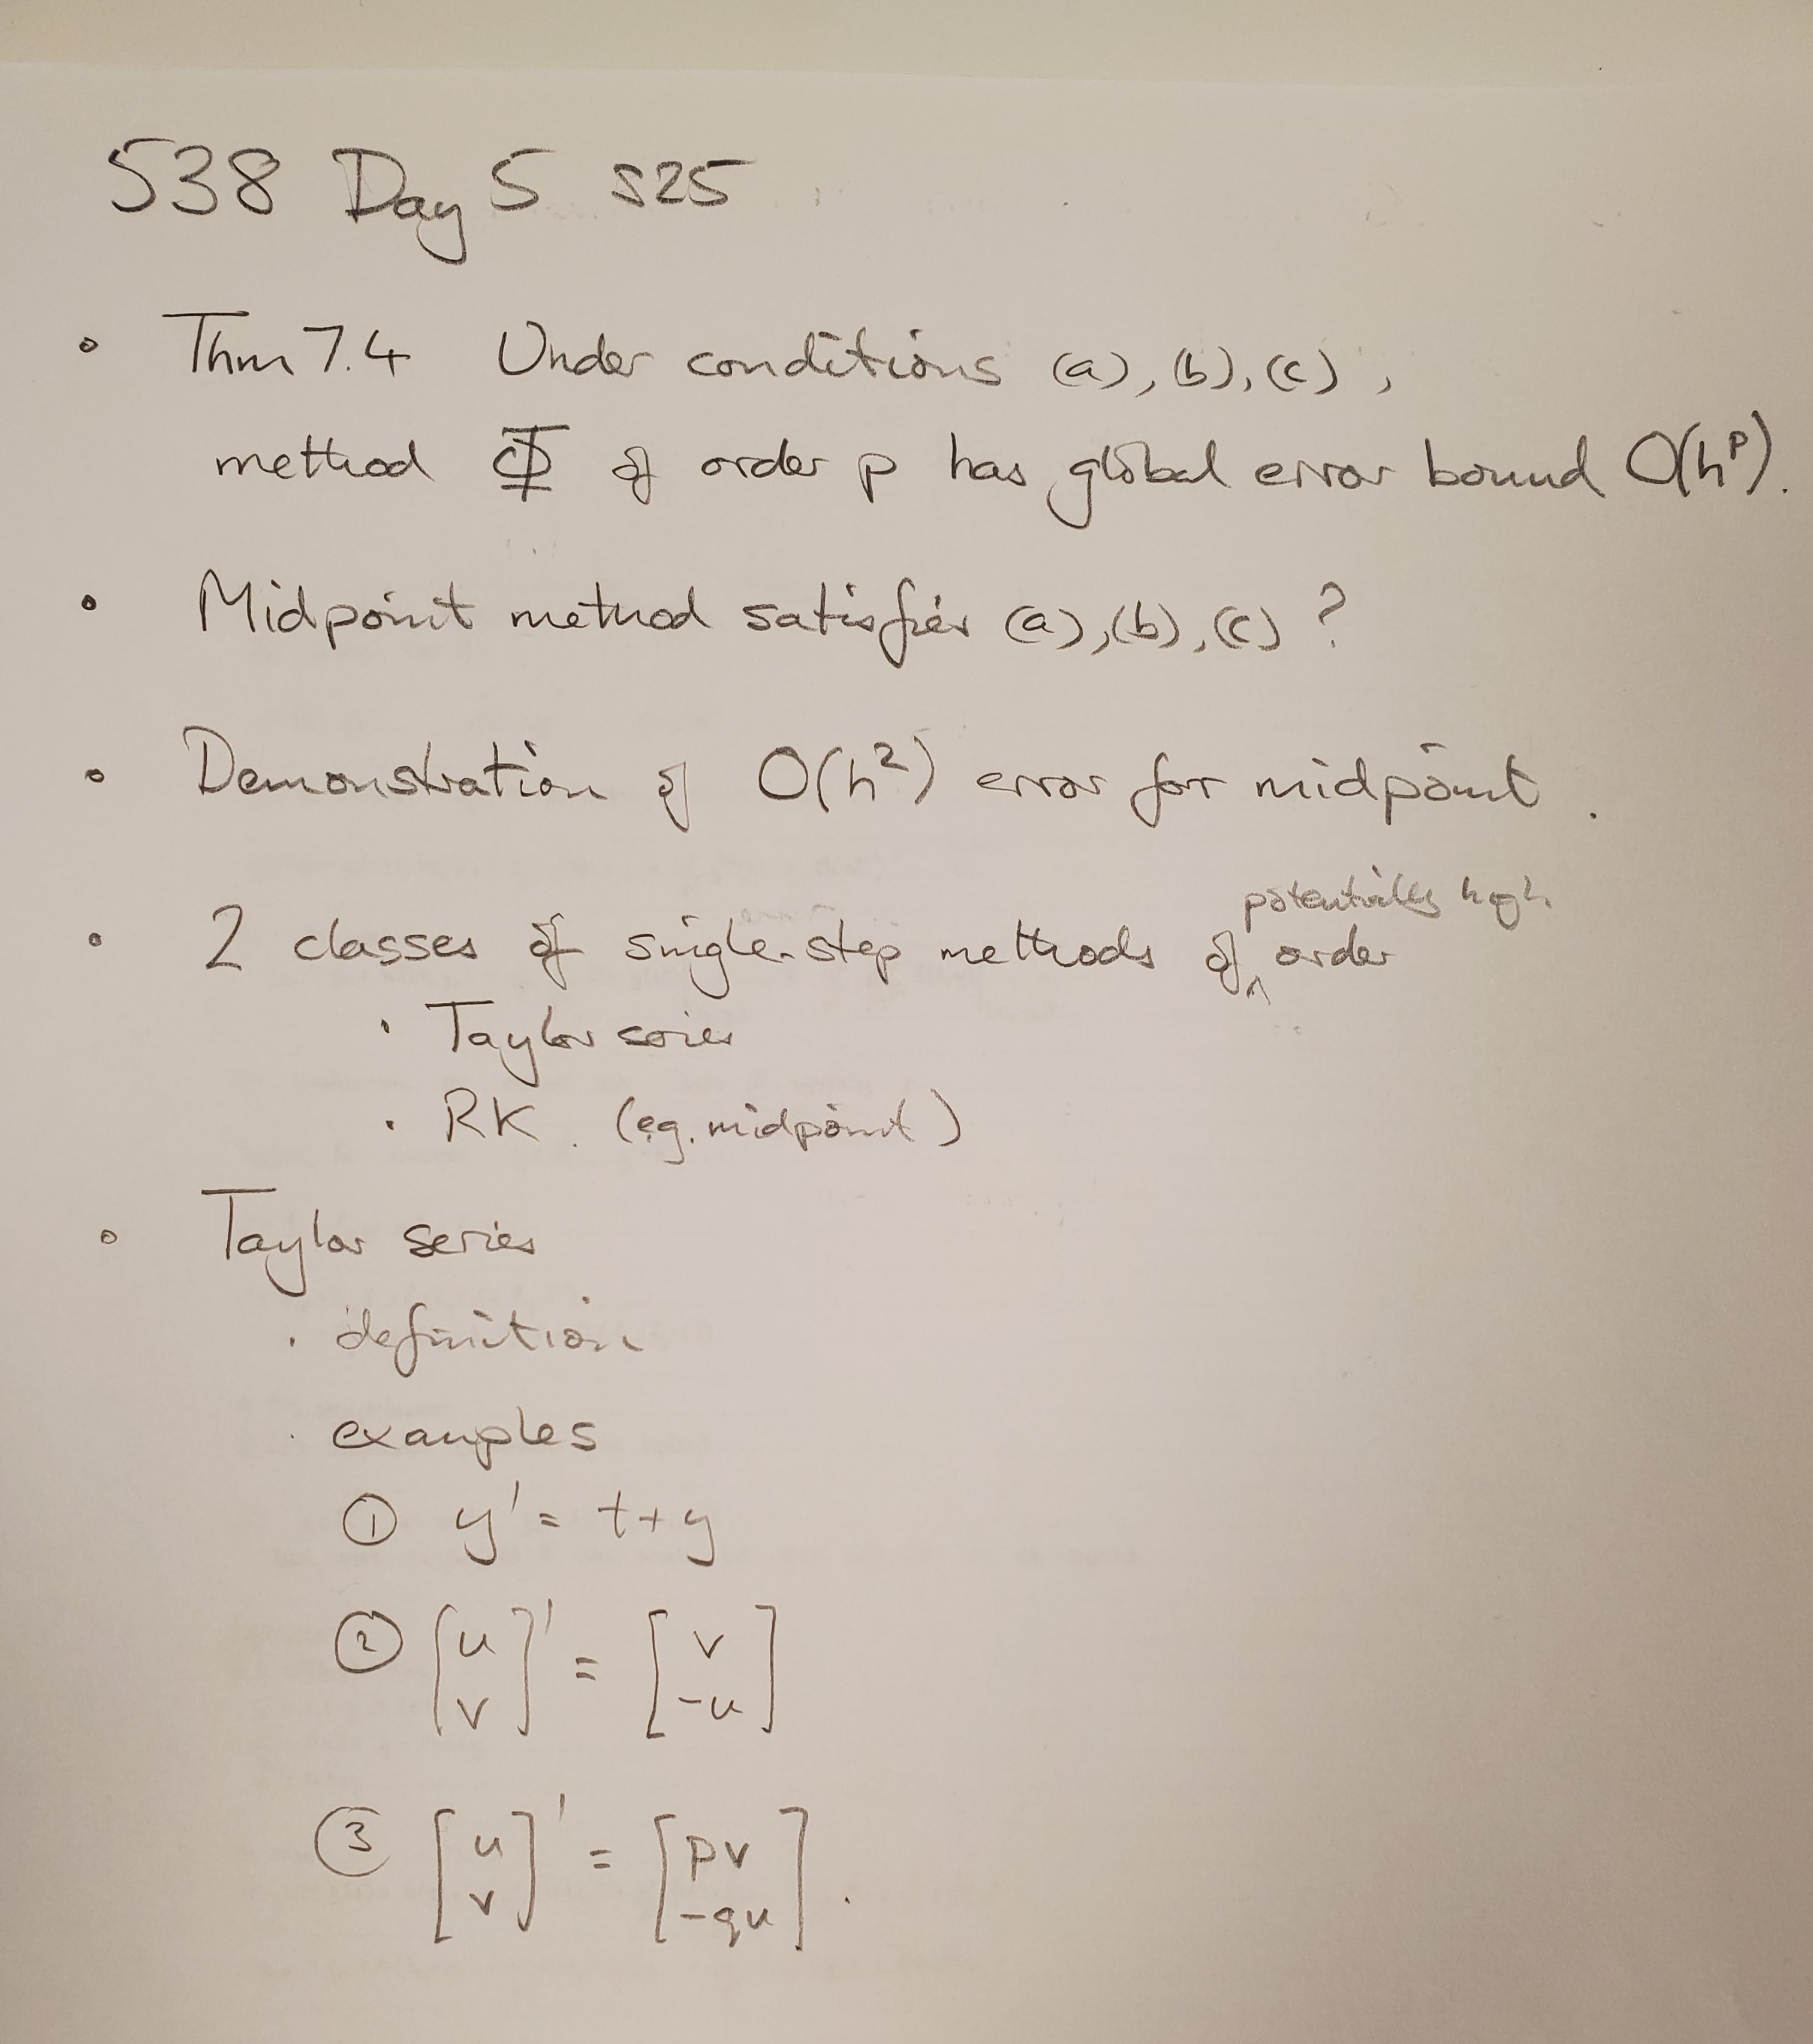 538 Day 5 S25
• Thm 7.4 Under conditions (a), (b), (c),
method Φ of order p has global error bound O(h^p).
• Midpoint method satisfies (a), (b), (c) ?
• Demonstration of O(h²) error for midpoint.
potentially high
• 2 classes of single-step methods of ^ order
· Taylor series
· RK. (eg. midpoint)
• Taylor series
· definition
· examples
① y' = t+y
② [u v]' = [v -u]
③ [u v]' = [pv -qu].